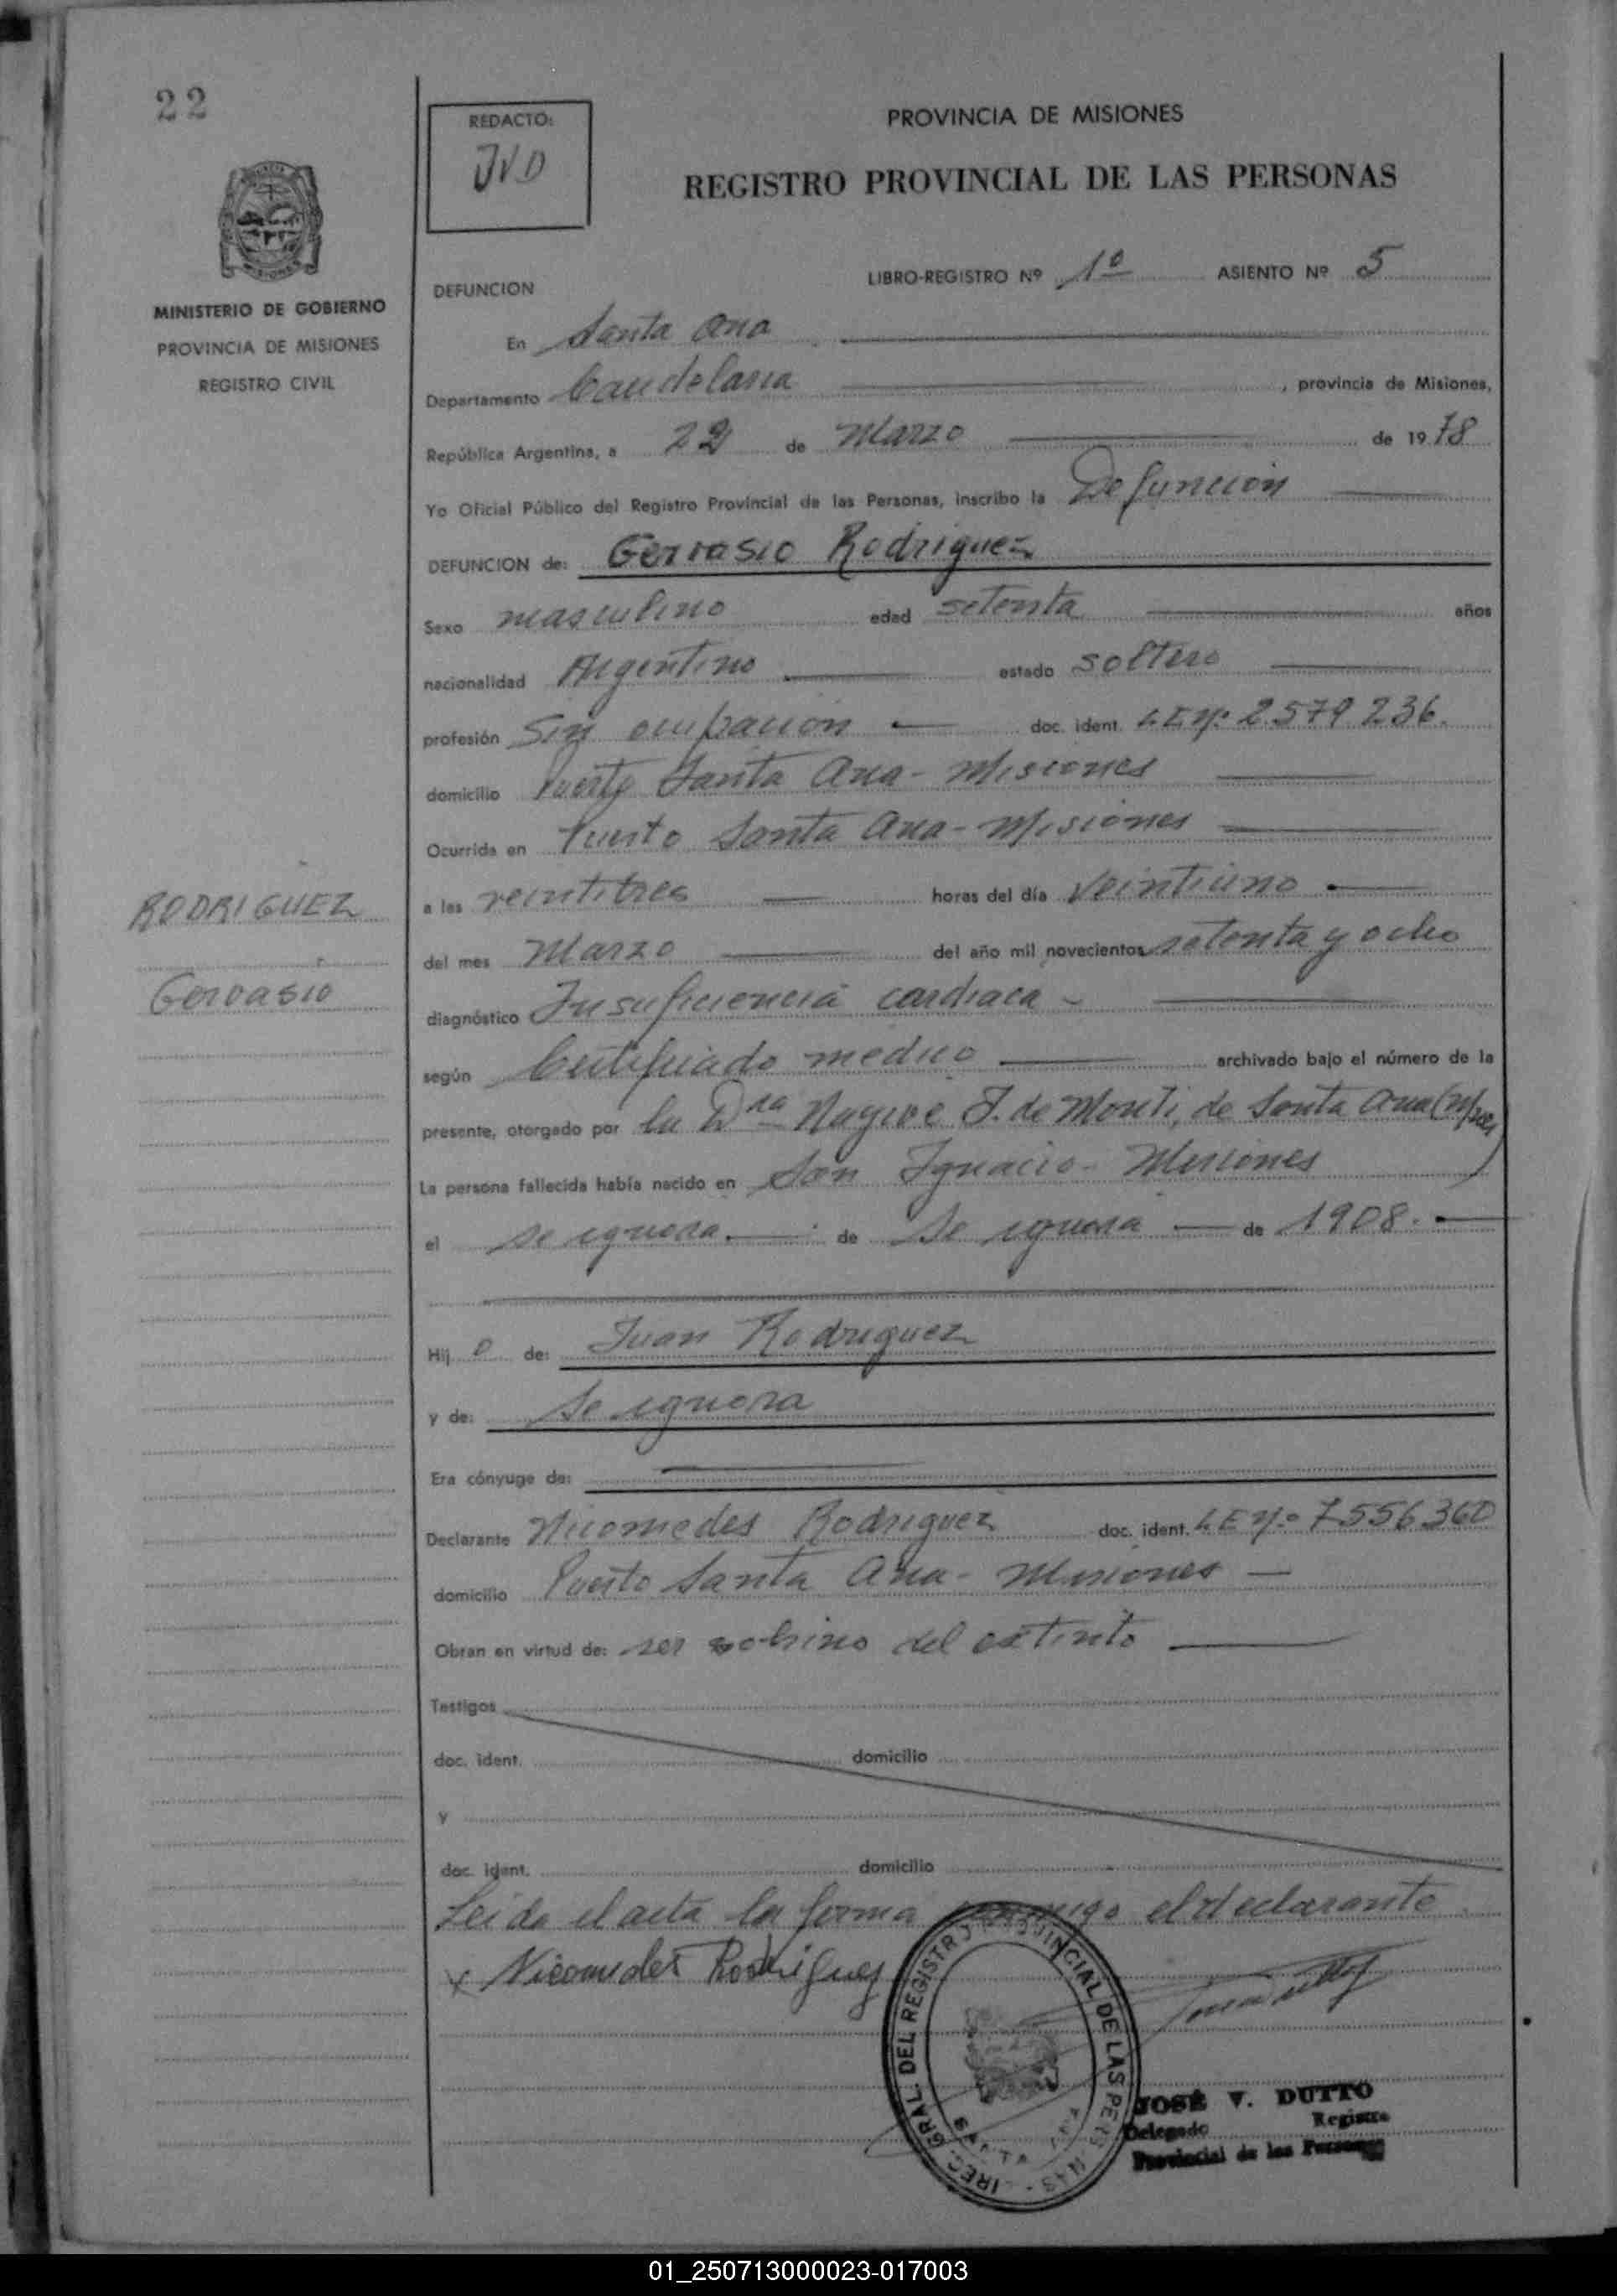 22
REDACTO:
JVD
PROVINCIA DE MISIONES
REGISTRO PROVINCIAL DE LAS PERSONAS
MISIONES
MINISTERIO DE GOBIERNO
PROVINCIA DE MISIONES
REGISTRO CIVIL
LIBRO-REGISTRO Nº 1º ASIENTO Nº 5
DEFUNCION
En Santa Ana
Departamento Candelaria , provincia de Misiones,
República Argentina, a 22 de Marzo de 1978
Yo Oficial Público del Registro Provincial de las Personas, inscribo la Defunción
DEFUNCION de: Gervasio Rodriguez
Sexo masculino edad setenta años
nacionalidad Argentino estado soltero
profesión Sin ocupación doc. ident. LE Nº 2.579.236.
domicilio Puerto Santa Ana - Misiones
Ocurrida en Puerto Santa Ana - Misiones
RODRIGUEZ
Gervasio
a las veintitres horas del día veintiuno
del mes Marzo del año mil novecientos setenta y ocho
diagnóstico Insuficiencia cardiaca -
según Certificado medico archivado bajo el número de la
presente, otorgado por la Dra de Monti, de Santa Ana
La persona fallecida había nacido en San Ignacio - Misiones
el se ignora. de se ignora de 1908.
Hijo de: Juan Rodriguez
y de: Se ignora
Era cónyuge de:
Declarante Nicomedes Rodriguez doc. ident. LE Nº 7.556.360
domicilio Puerto Santa Ana - Misiones
Obran en virtud de: ser sobrino del extinto
Testigos
doc. ident. domicilio
y
doc. ident. domicilio
Leida el acta la firma conmigo el declarante
x Nicomedes Rodriguez
GRAL. DEL REGISTRO PROVINCIAL DE LAS PERSONAS
SANTA ANA
JOSÉ V. DUTTO
Delegado Registro
Provincial de las Personas
01_250713000023-017003